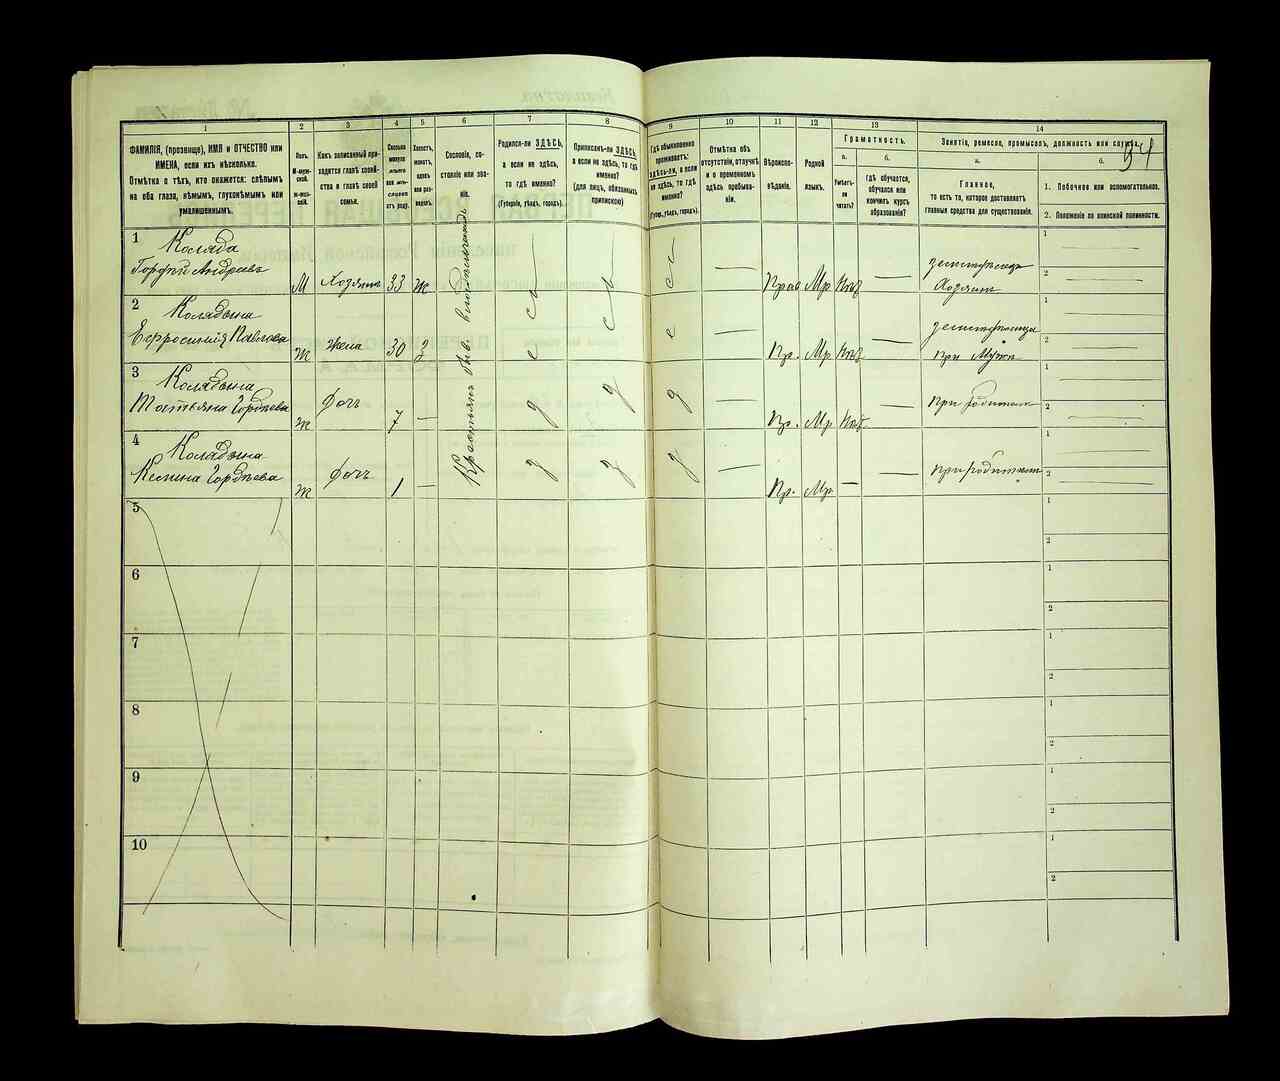 94
1
2
3
4
5
6
7
8
9
10
11
12
13
14
ФАМИЛІЯ, (прозвище), ИМЯ и ОТЧЕСТВО или
ИМЕНА, если ихъ нѣсколько.
Отмѣтка о тѣхъ, кто окажется: слѣпымъ
на оба глаза, нѣмымъ, глухонѣмымъ или
умалишеннымъ.
Полъ.
М-муж-
ской.
Ж-жен-
скій.
Какъ записанный при-
ходится главѣ хозяй-
ства и главѣ своей
семьи.
Сколько
минуло
лѣтъ
или мѣ-
сяцевъ
отъ роду.
Холостъ,
женатъ,
вдовъ
или раз-
веденъ.
Сословіе, со-
стояніе или зва-
ніе.
Родился-ли ЗДѢСЬ,
а если не здѣсь,
то гдѣ именно?
(Губернія, уѣздъ, городъ).
Приписанъ-ли ЗДѢСЬ,
а если не здѣсь, то гдѣ
именно?
(для лицъ, обязанныхъ
припискою)
Гдѣ обыкновенно
проживаетъ:
ЗДѢСЬ-ли, а если
не здѣсь, то гдѣ
именно?
(Губерн., уѣздъ, городъ).
Отмѣтка объ
отсутствіи, отлучкѣ
и о временномъ
здѣсь пребыва-
ніи.
Вѣроиспо-
вѣданіе.
Родной
языкъ.
Грамотность.
а.
б.
Умѣетъ-
ли
читать?
гдѣ обучается,
обучался или
кончилъ курсъ
образованія?
Занятіе, ремесло, промыселъ, должность или служба.
а.
б.
Главное,
то есть то, которое доставляетъ
главныя средства для существованія.
1. Побочное или вспомогательное.
2. Положеніе по воинской повинности.
1
Коляда
Гордѣй Андреевъ
М
Хозяинъ
33
ж
Крестьянъ
Прав
Мр
Нѣт
Хозяинъ
1
2
2
Колядына
Ефросинія Павлова
Ж
Жена
30
З
Пр.
Мр
Нѣт
При Мужѣ
1
2
3
Колядына
Татьяна Гордѣева
Ж
Дочь
7
—
Пр.
Мр
Нѣт
При родителях
1
2
4
Колядына
Гордѣева
Ж
Дочь
1
—
Пр.
Мр.
—
При родителях
1
2
5
1
2
6
1
2
7
1
2
8
1
2
9
1
2
10
1
2